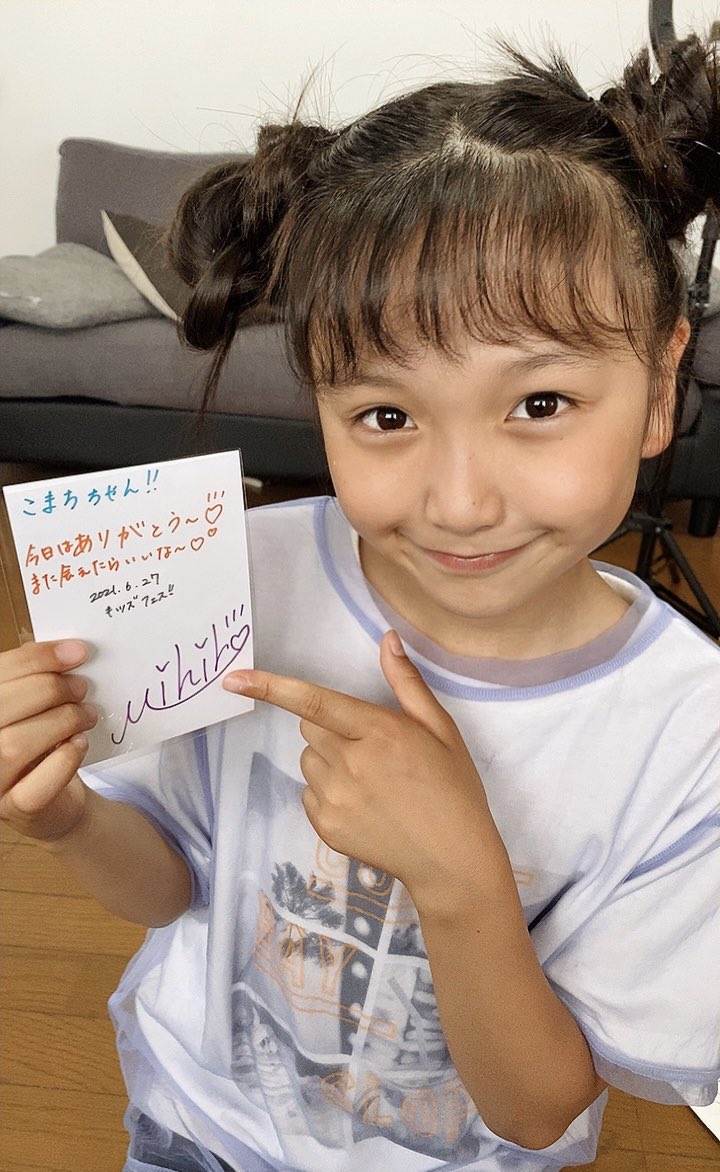 こまちちゃん!!
今日はありがとう〜♡
また会えたらいいな〜♡
2021.6.27
キッズフェス!!